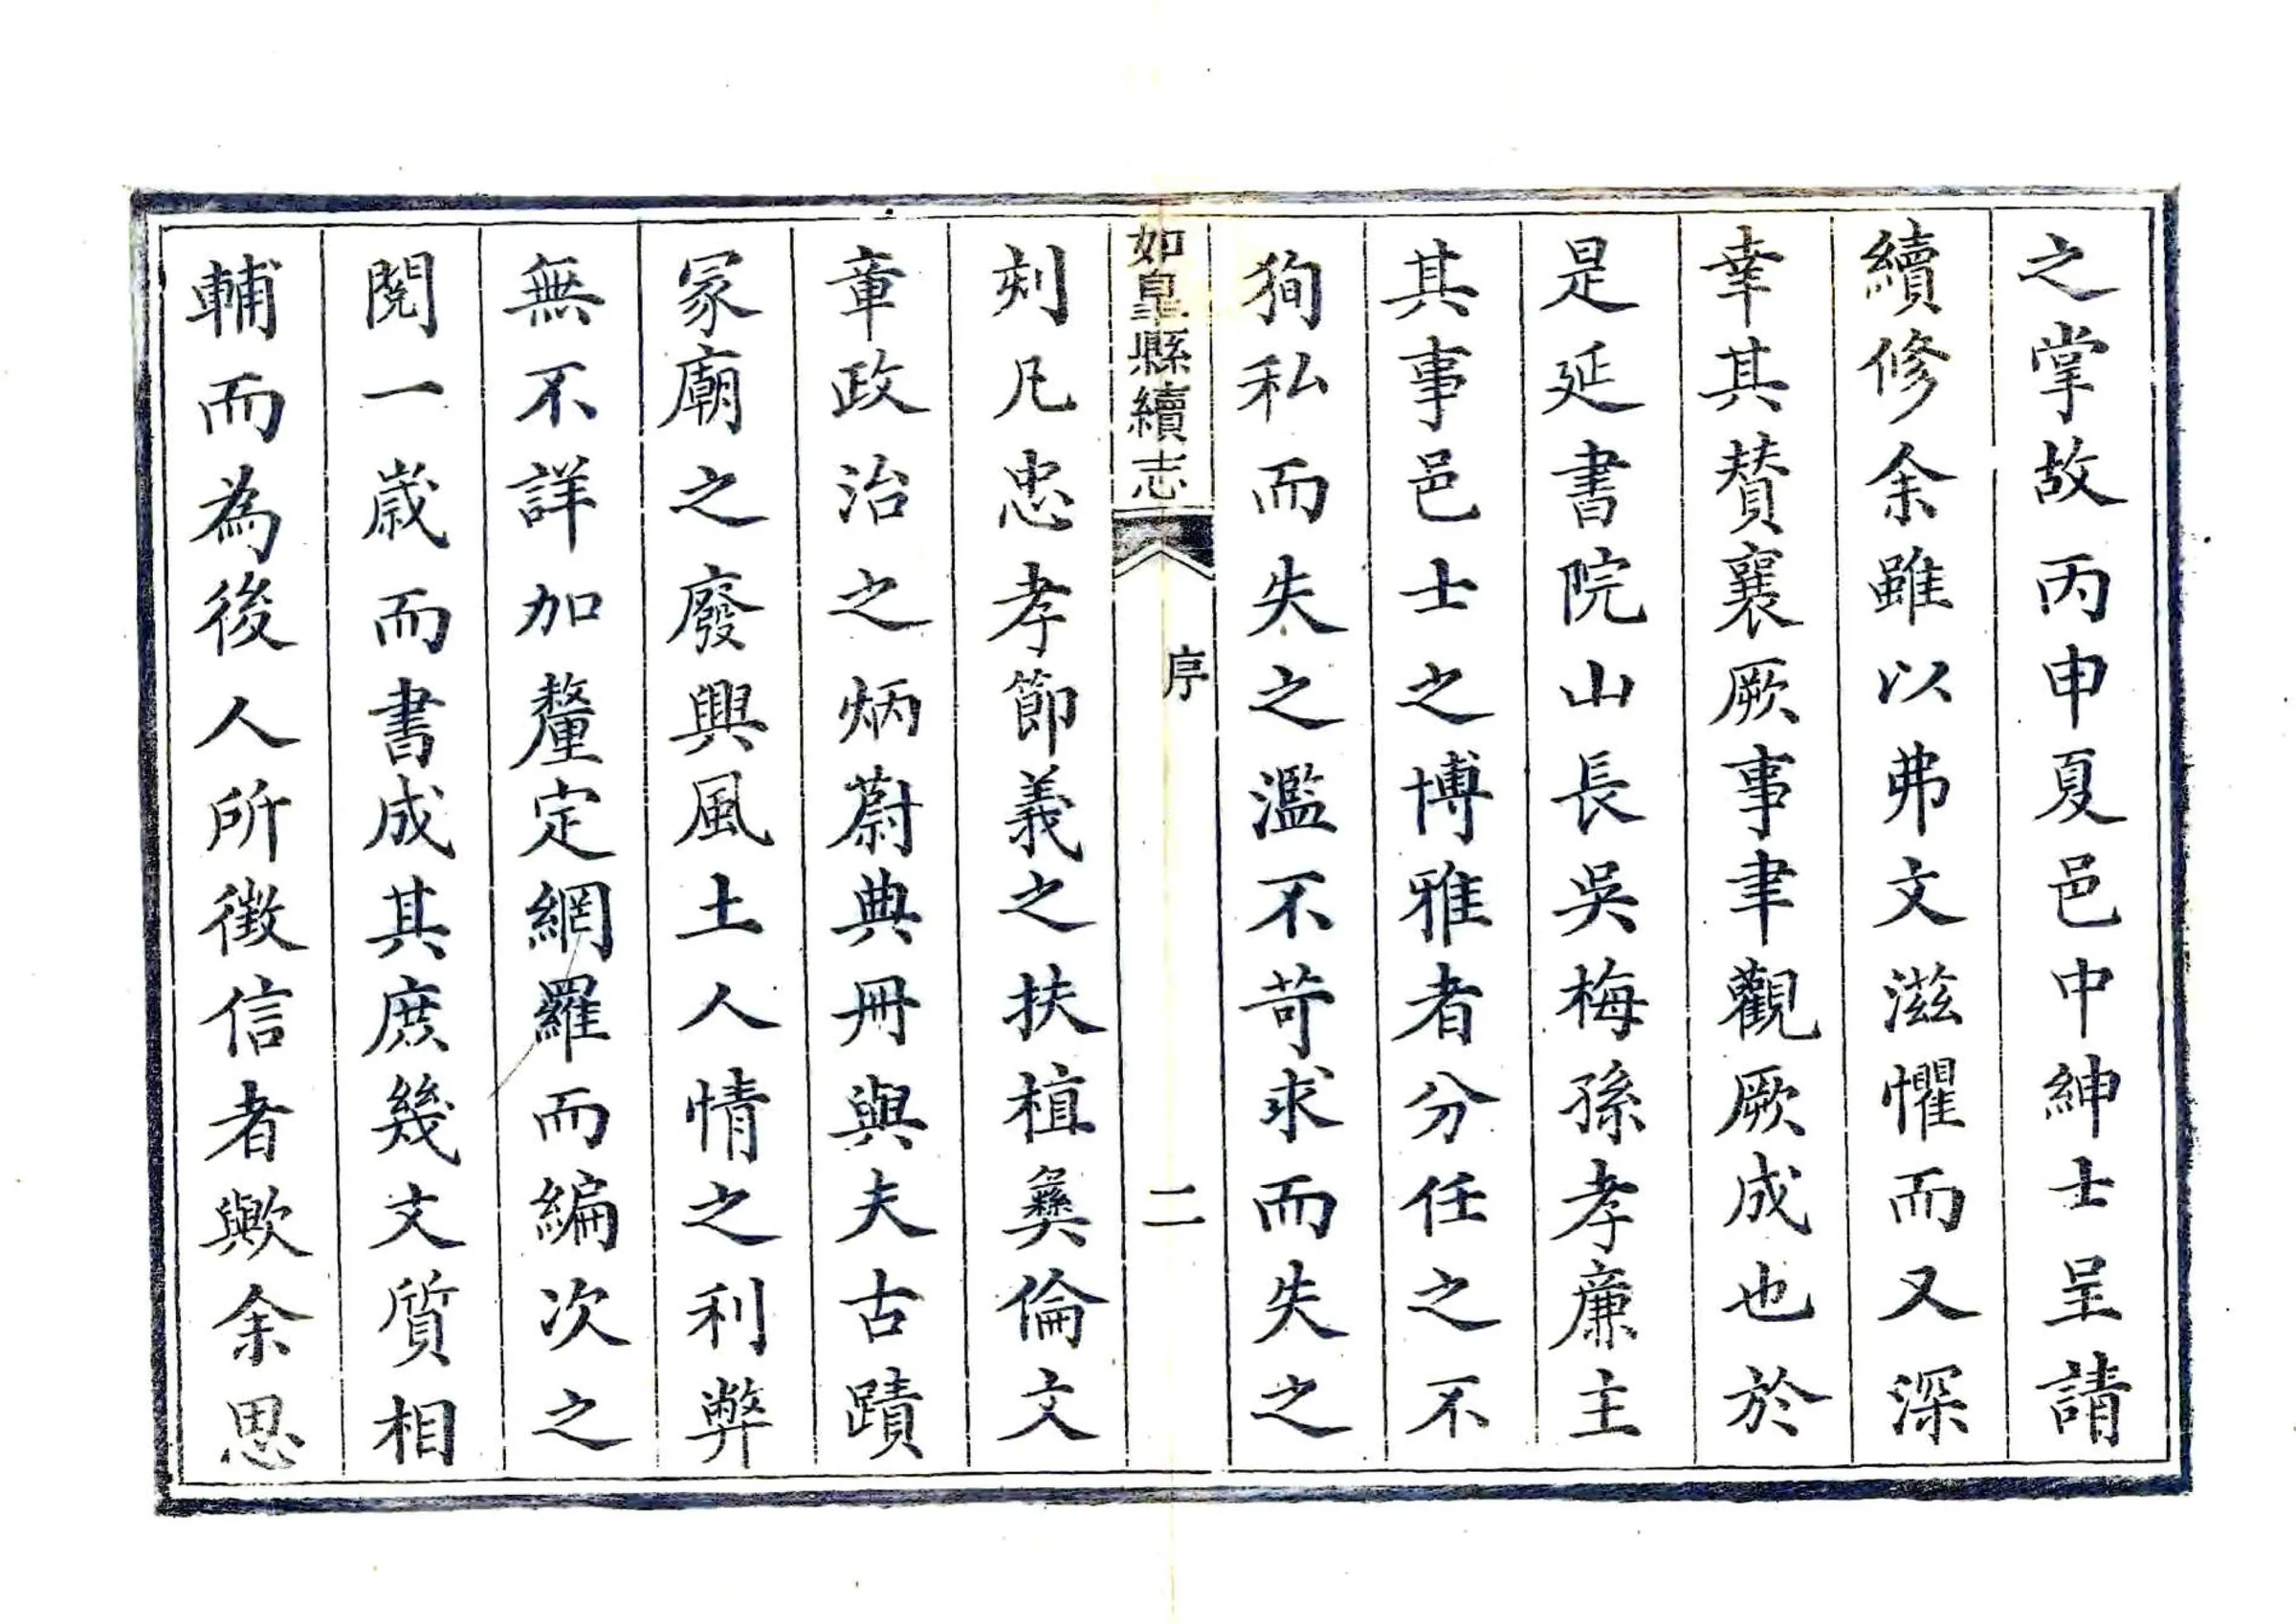 之掌故丙申夏邑中紳士呈請
續修余雖以弗文滋懼而又深
幸其賛襄厥事聿觀厥成也於
是延書院山長吳梅孫孝廉主
其事邑士之博雅者分任之不
狥私而失之濫不苛求而失之
如皋縣續志
序
二
刻凡忠孝節義之扶植彝倫文
章政治之炳蔚典冊與夫古蹟
冢廟之廢興風土人情之利弊
無不詳加釐定網羅而編次之
閱一歲而書成其庶幾文質相
輔而為後人所徵信者歟余思